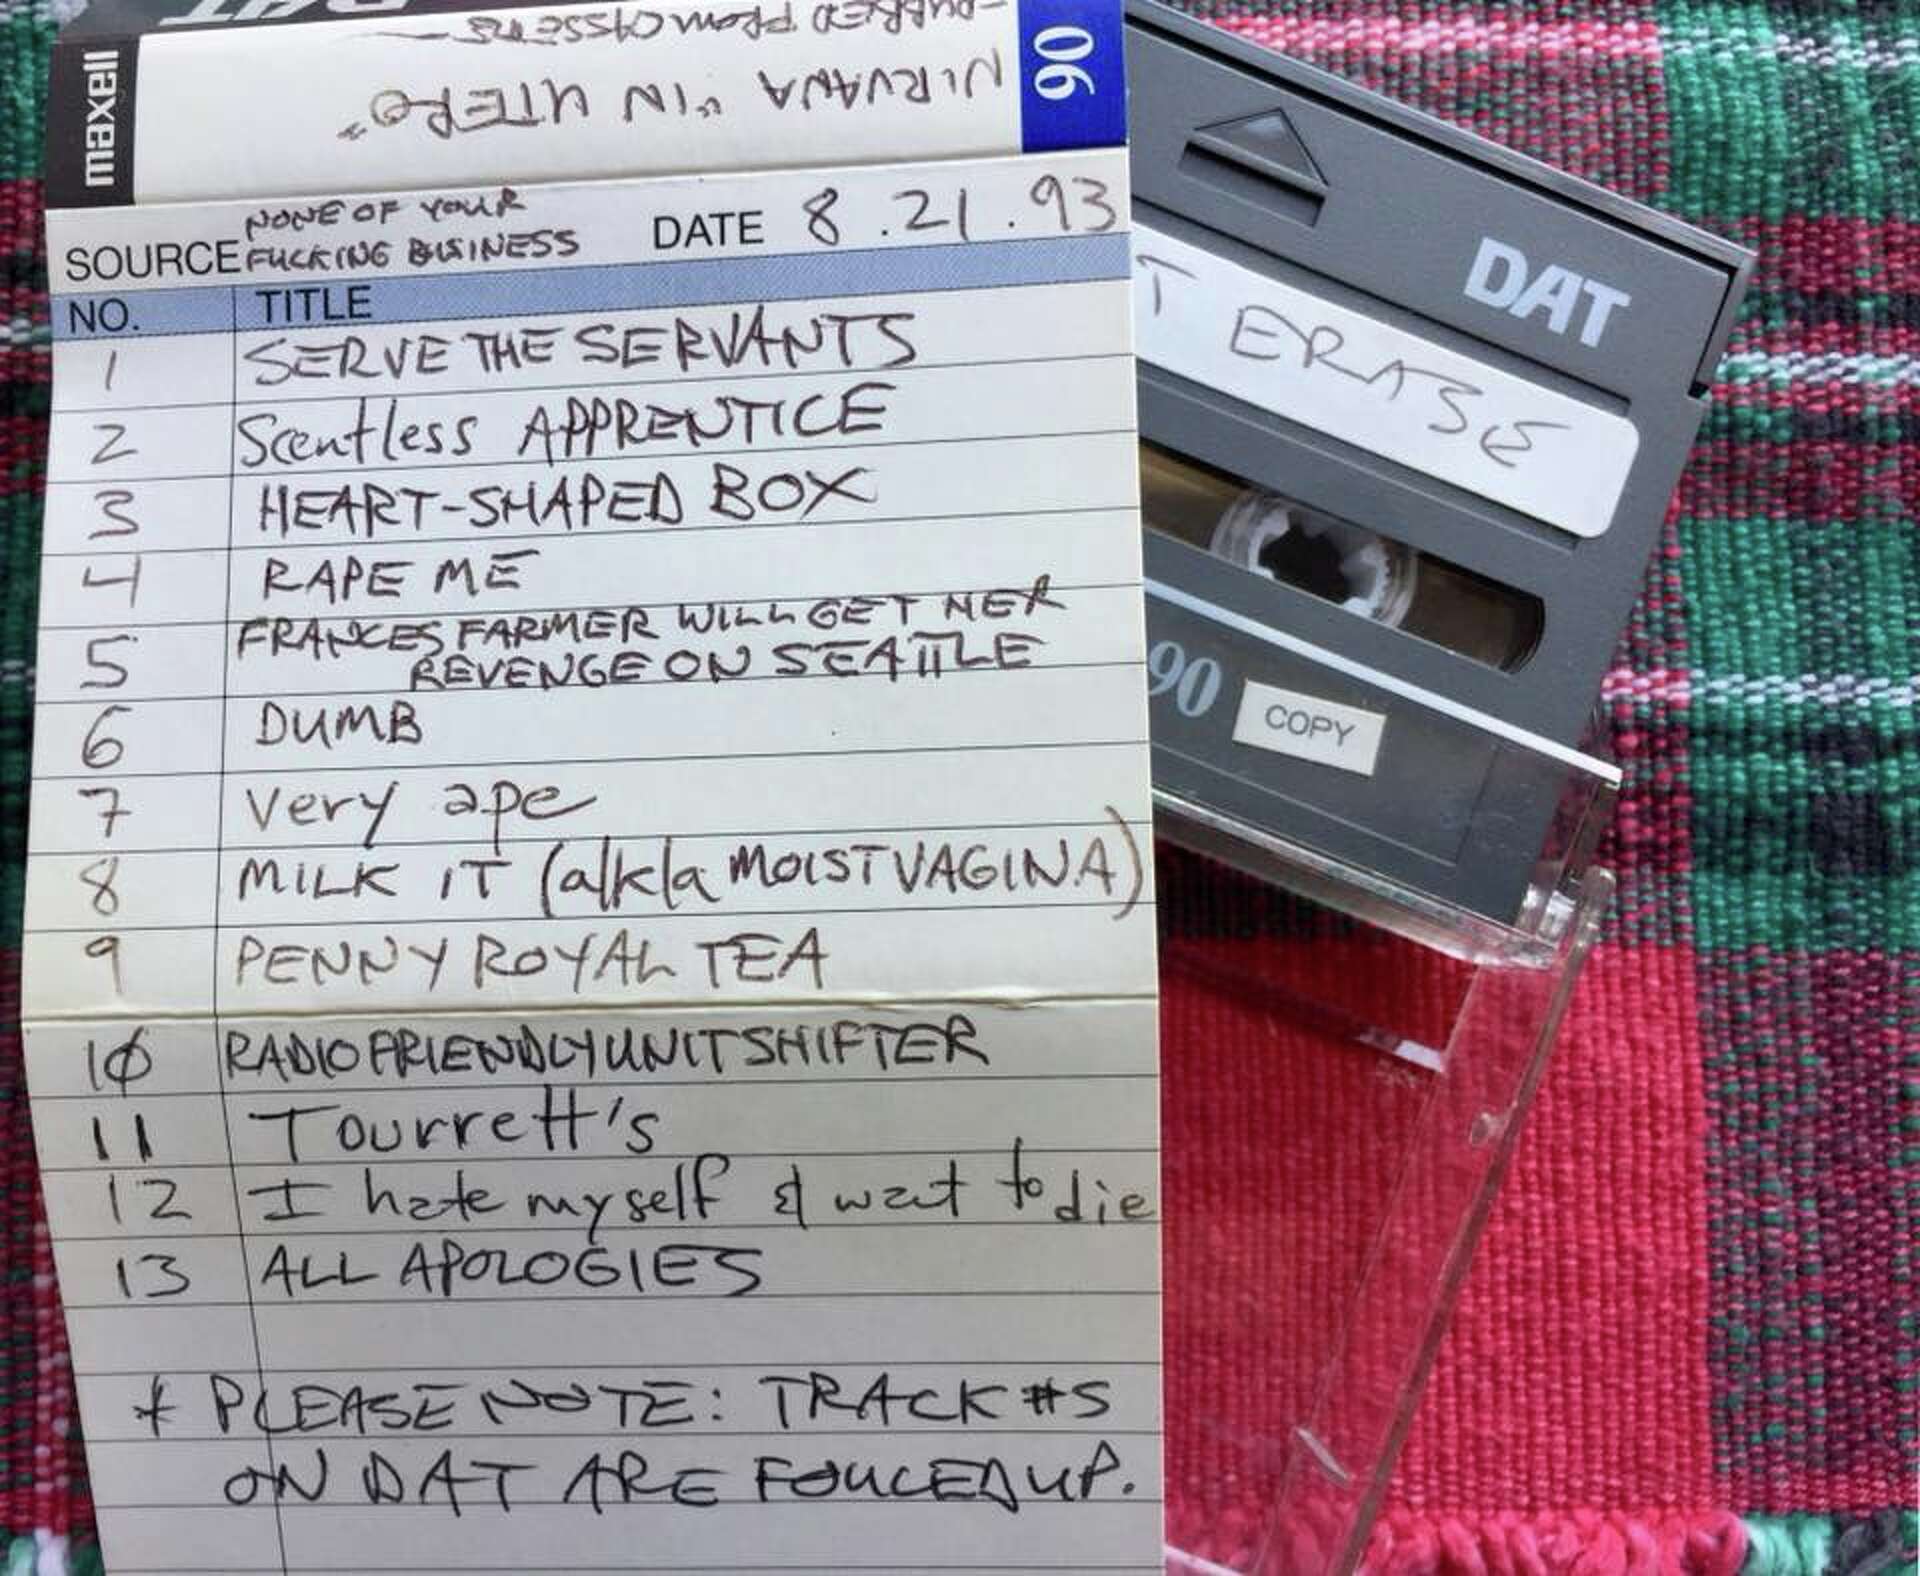 DAT
-DUBBED FROM CASSETTE
NIRVANA "IN UTERO"
maxell
90
SOURCE NONE OF YOUR
FUCKING BUSINESS
DATE 8.21.93
NO. TITLE
1 SERVE THE SERVANTS
2 Scentless APPRENTICE
3 HEART-SHAPED BOX
4 RAPE ME
5 FRANCES FARMER WILL GET HER
REVENGE ON SEATTLE
6 DUMB
7 very ape
8 MILK IT (a/k/a MOIST VAGINA)
9 PENNY ROYAL TEA
10 RADIO FRIENDLY UNIT SHIFTER
11 Tourrett's
12 I hate myself & want to die
13 ALL APOLOGIES
* PLEASE NOTE: TRACK #S
ON DAT ARE FOUCED UP.
DAT
T ERASE
90
COPY